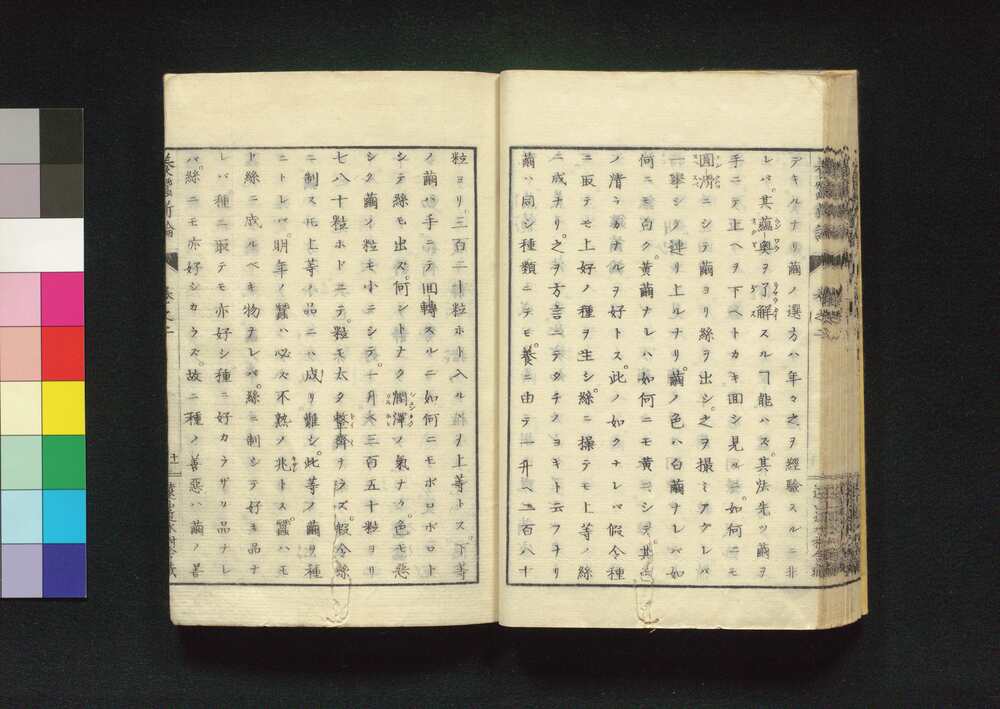 デキルナリ繭ノ選方ハ年々之ヲ經驗スルニ非
レバ其蘊奥ヲ了解スルヿ能ハズ其法先ツ繭ヲ
手ニテ上ヘヲ下ヘトカキ回シ見ルニ如何ニモ
圓滑ニシテ繭ヨリ絲ヲ出シ之ヲ撮ミアグレバ
一挙シク連リ上ルナリ繭ノ色ハ白繭ナレバ如
何ニモ白ク黄繭ナレハ如何ニモ黄ニシテ其色
ノ清ラカナルヲ好トス此ノ如クナレバ假令種
ニ取テモ上好ノ種ヲ生シ絲ニ操テモ上等ノ絲
ニ成ナリ之ヲ方言ニテタチノヨキト云フナリ
繭ハ同シ種類ニテモ養ニ由テ一升ヘ二百八十
粒ヨリ三百二十粒ホト入ル ヲ上等トス下等
ノ繭ハ手ニテ回轉スルニ如何ニモボロボロト
シテ絲モ出ズ何シトナク潤澤ノ氣ナク色モ惡
シク繭ノ粒モ小ニシテ一升ヘ三百五十粒ヨリ
七八十粒ホドニテ粒モ太タ整齊ナラズ假令絲
ニ制スモ上等ノ品ニハ成リ難シ此等ノ繭ヲ種
ニトレバ明年ノ蠶ハ必ス不熟ノ兆トス蠶ハモ
ト絲ニ成ルベキ物ナレバ絲ニ制シテ好キ品ナ
レバ種ニ取テモ亦好シ種ニ好カラザル品ナレ
バ絲ニモ亦好シカラズ故ニ種ノ善惡ハ繭ノ善
養蠶新論 卷之二 十一